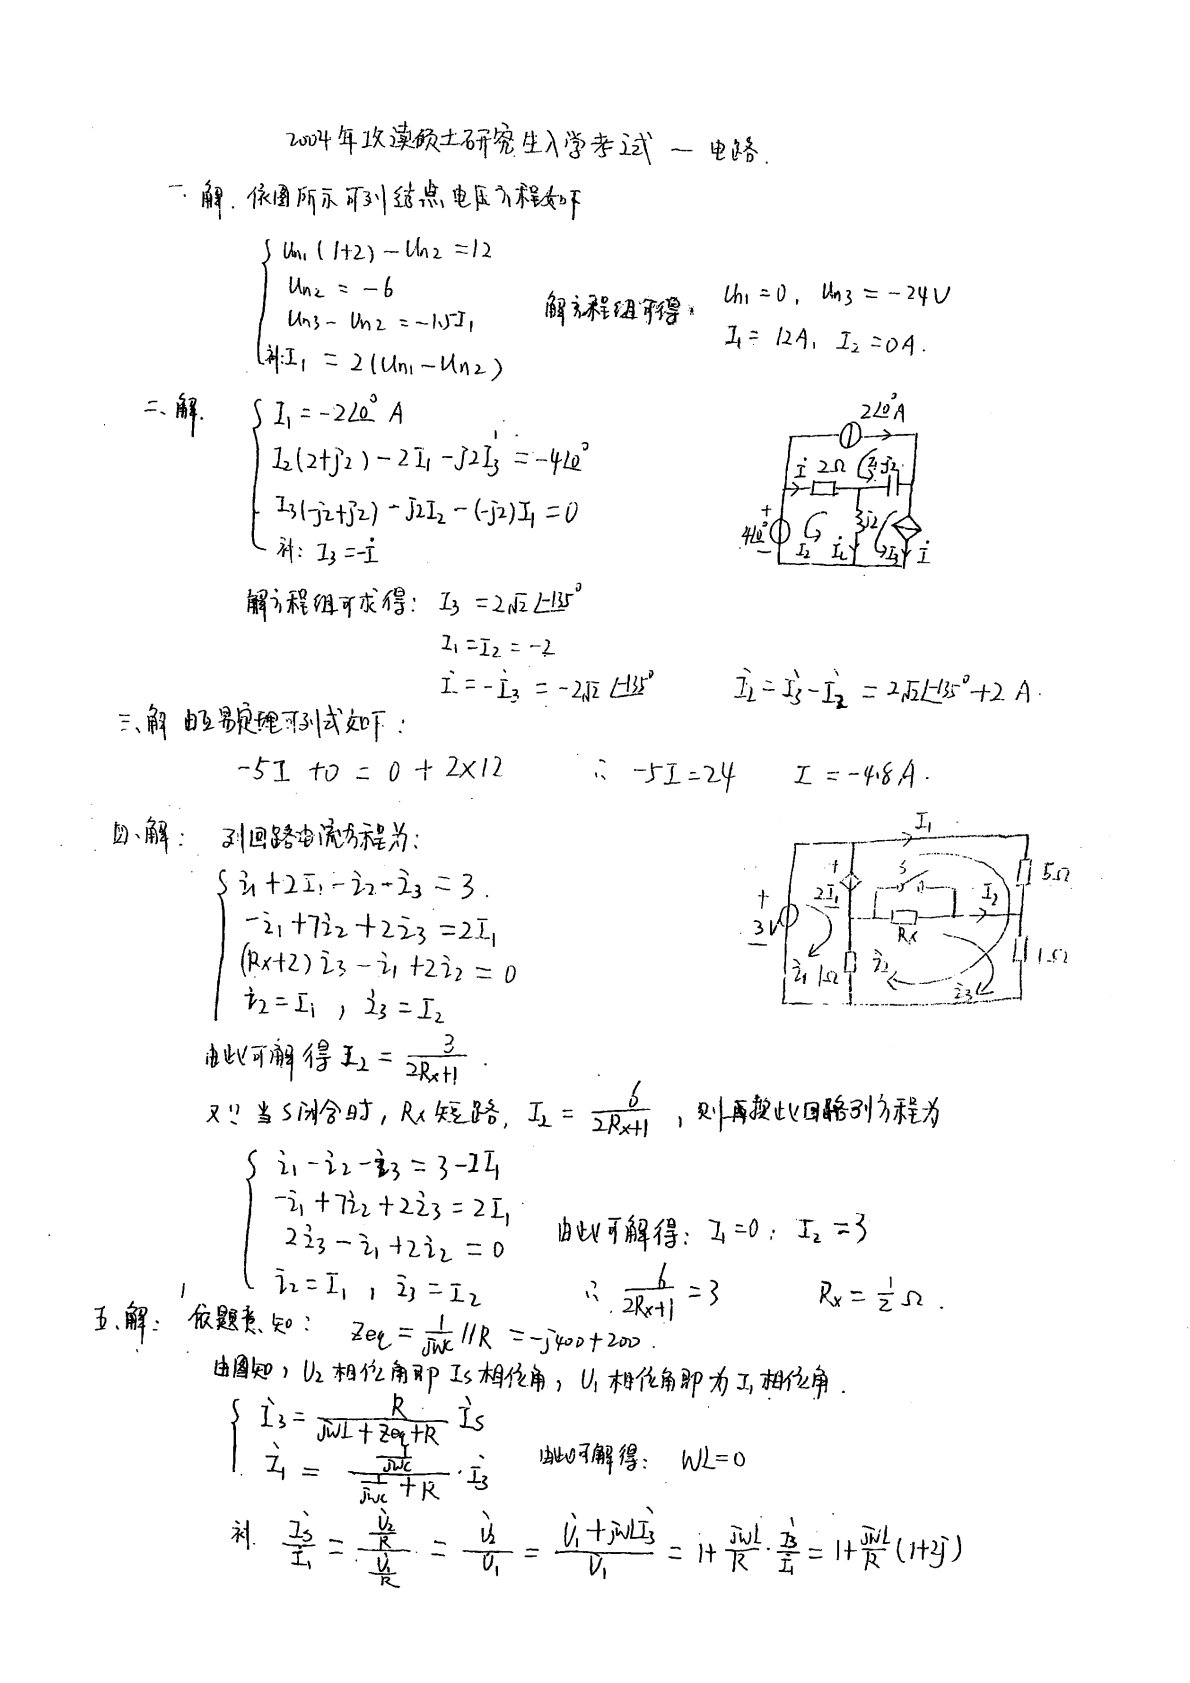 2004年攻读硕士研究生入学考试 — 电路.
一. 解. 依图所示可列结点电压方程如下
Un1(1+2)-Un2=12
Un2=-6
Un3-Un2=-1.5I1
补:I1=2(Un1-Un2)
解方程组可得: Un1=0, Un3=-24V
I1=12A, I2=0A.
二、解. I1=-2∠0° A
I2(2+j2)-2I1-j2I3=-4∠0°
I3(-j2+j2)-j2I2-(-j2)I1=0
补: I3=-İ
2∠0°A
İ 2Ω I1 -j2
4∠0° + - I2 İL j2 I3 İ
解方程组可求得: I3=2√2∠-135°
I1=I2=-2
İ=-İ3=-2√2∠-135° İL=İ3-İ2=2√2∠-135°+2 A.
三、解 由互易定理可列式如下:
-5I+0=0+2×12 ∴ -5I=24 I=-4.8A.
四、解: 列回路电流方程为:
i1+2I1-i2-i3=3.
-i1+7i2+2i3=2I1
(Rx+2)i3-i1+2i2=0
i2=I1, i3=I2
I1
+ 2I1 S I2 5Ω
+ 3V - Rx
i1 1Ω i2 i3 1Ω
由此可解得 I2=3/(2Rx+1).
又∵当S闭合时, Rx短路, I2=6/(2Rx+1), 则再按此回路列方程为
i1-i2-i3=3-2I1
-i1+7i2+2i3=2I1
2i3-i1+2i2=0
i2=I1, i3=I2
由此可解得: I1=0; I2=3
∴ 6/(2Rx+1)=3 Rx=1/2 Ω.
五、解: 依题意知: Zeq=1/(jwc)//R=-j400+200.
由图知, U2相位角即Is相位角, U1相位角即为I1相位角.
İ3=R/(jwL+Zeq+R) İs
İ1=(1/(jwc))/(1/(jwc)+R)·İ3
由此可解得: WL=0
补. İs/İ1=(U̇2/R)/(U̇1/R)=U̇2/U̇1=(U̇1+jwLİ3)/U̇1=1+jwL/R·İ3/İ1=1+jwL/R(1+2j)